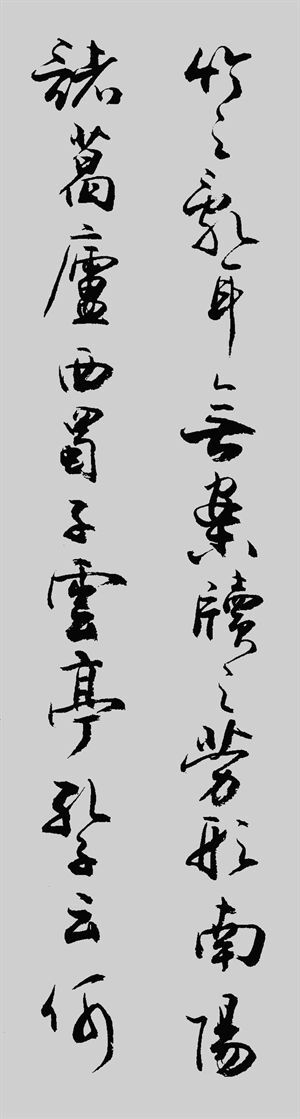 竹之亂耳無案牘之勞形南陽
諸葛廬西蜀子雲亭孔子云何